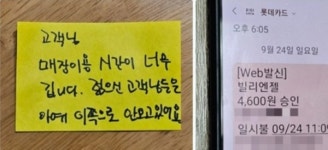 고객님
매장이용 시간이 너무
깁니다. 젊으신 고객님들은
아예 이쪽으로 안오고있어요
롯데카드
오후 6:05
9월 24일 일요일
[Web발신]
빌리엔젤
4,600원 승인
일시불 09/24 11:09